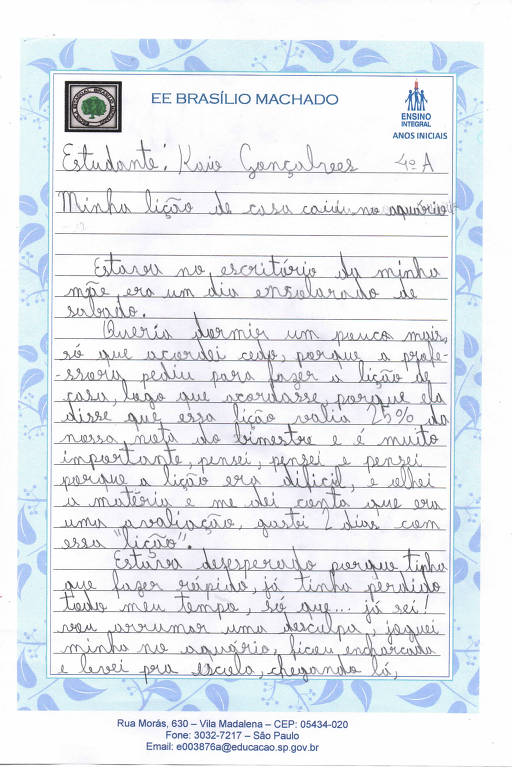 EE BRASÍLIO MACHADO
ENSINO
INTEGRAL
ANOS INICIAIS
Estudante: Kaio Gonçalves 4º A
Minha lição de casa caiu no aquário
Estava no escritório da minha
mãe era um dia ensolarado de
sabado.
Queria dormir um pouco mais,
só que acordei cedo, porque a profe-
-ssora pediu para fazer a lição de
casa, logo que acordasse, porque ela
disse que essa lição valia 25% da
nossa nota do bimestre e é muito
importante, pensei, pensei e pensei
porque a lição era dificil, e olhei
a matéria e me dei conta que era
uma avaliação, gastei 2 dias com
essa "lição".
Estava desesperado porque tinha
que fazer rápido, já tinha perdido
todo meu tempo, só que... já sei!
vou arrumar uma desculpa, joguei
minha no aquário, ficou encharcada
e levei pra escola, chegando lá,
Rua Morás, 630 – Vila Madalena – CEP: 05434-020
Fone: 3032-7217 – São Paulo
Email: e003876a@educacao.sp.gov.br